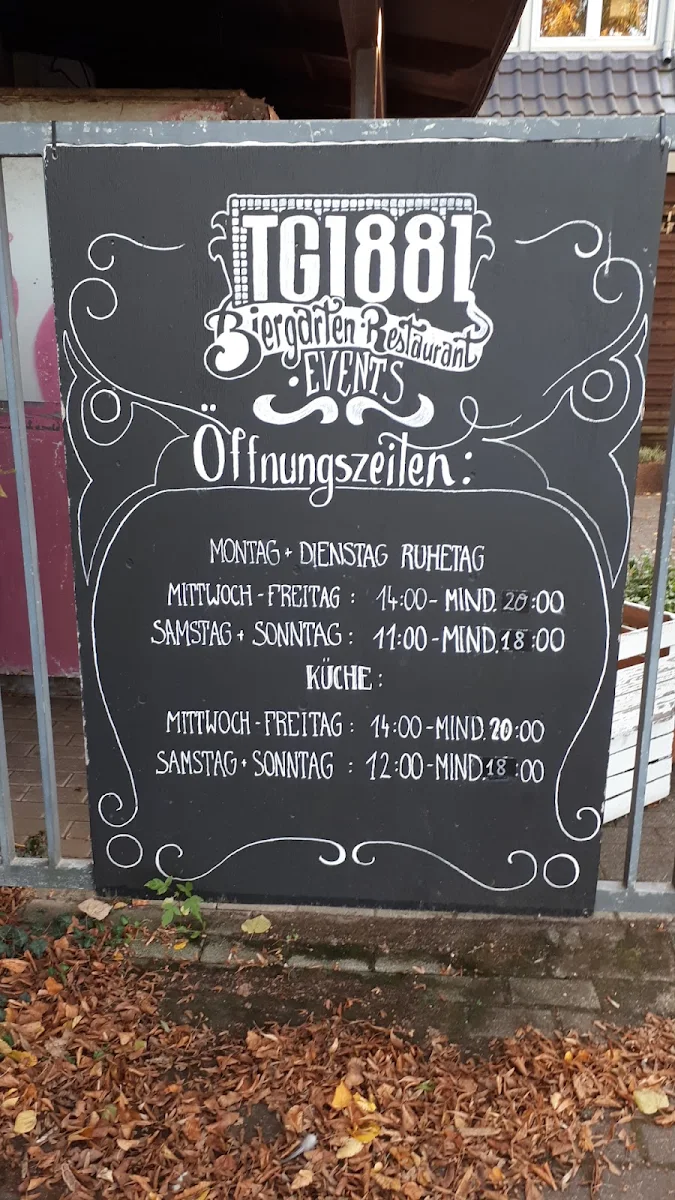 TG1881
Biergarten · Restaurant
· EVENTS
Öffnungszeiten:
MONTAG + DIENSTAG RUHETAG
MITTWOCH - FREITAG : 14:00 - MIND. 20:00
SAMSTAG + SONNTAG : 11:00 - MIND. 18:00
KÜCHE :
MITTWOCH - FREITAG : 14:00 - MIND. 20:00
SAMSTAG + SONNTAG : 12:00 - MIND. 18:00